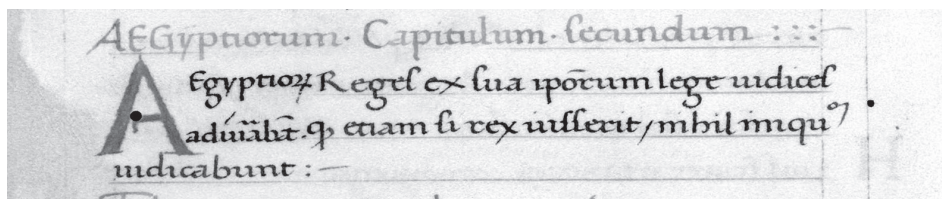 AEGyptiorum· Capitulum· ſecundum :::—
AEgyptioꝝ Regeſ ex ſua ipōrum lege iudiceſ
adiurabāt. ꝙ etiam ſi rex iuſſerit / nihil iniquꝰ
iudicabunt :—